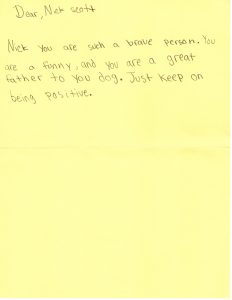 Dear, Nick scott
Nick you are such a brave person. You
are a fonny, and you are a great
father to you dog. Just keep on
being positive.